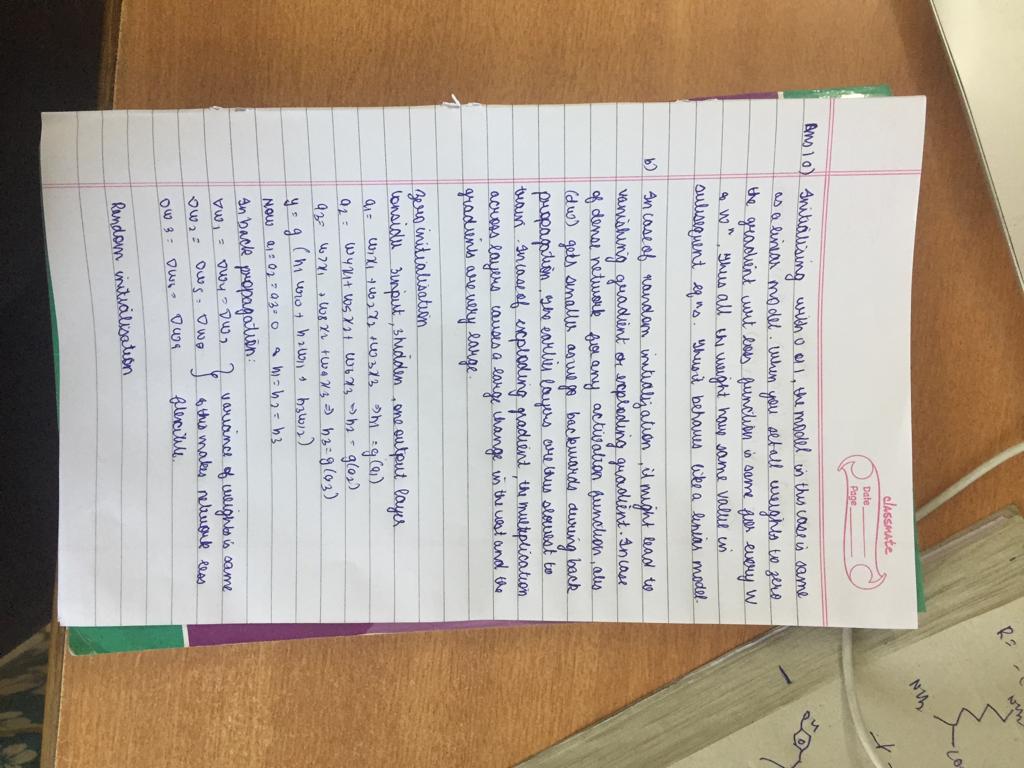 classmate
Date
Page
Ans 1 a) Initialising with 0 or 1, the model in this case is same
as a linear model. When you set all weights to zero
the gradient wrt loss function is same for every W
Wⁿ. Thus all the weight have same value in
subsequent eqⁿs. Thus it behaves like a linear model.
b) In case of random initialization, it might lead to
vanishing gradient or exploding gradient. In case
of dense network for any activation function, abs
(dw) gets smaller as we go backwards during back
propagation. The earlier layers are thus slowest to
train. In case of exploding gradient, the multiplication
across layers causes a large change in the cost and the
gradients are very large.
Zero initialisation
Consider 3 input, 3 hidden, one output layer
a1 = w1x1 + w2x2 + w3x3 ⇒ h1 = g(a1)
a2 = w4x1 + w5x2 + w6x3 ⇒ h2 = g(a2)
a3 = w7x1 + w8x2 + w9x3 ⇒ h3 = g(a3)
y = g (h1 w10 + h2w11 + h3w12)
Now a1 = a2 = a3 = 0 & h1 = h2 = h3
In back propagation:
∇w1 = ∇w4 = ∇w7 } variance of weights is same
∇w2 = ∇w5 = ∇w8 & this makes network less
∇w3 = ∇w6 = ∇w9 flexible.
Random initialisation
R =
NH₂
NH₂